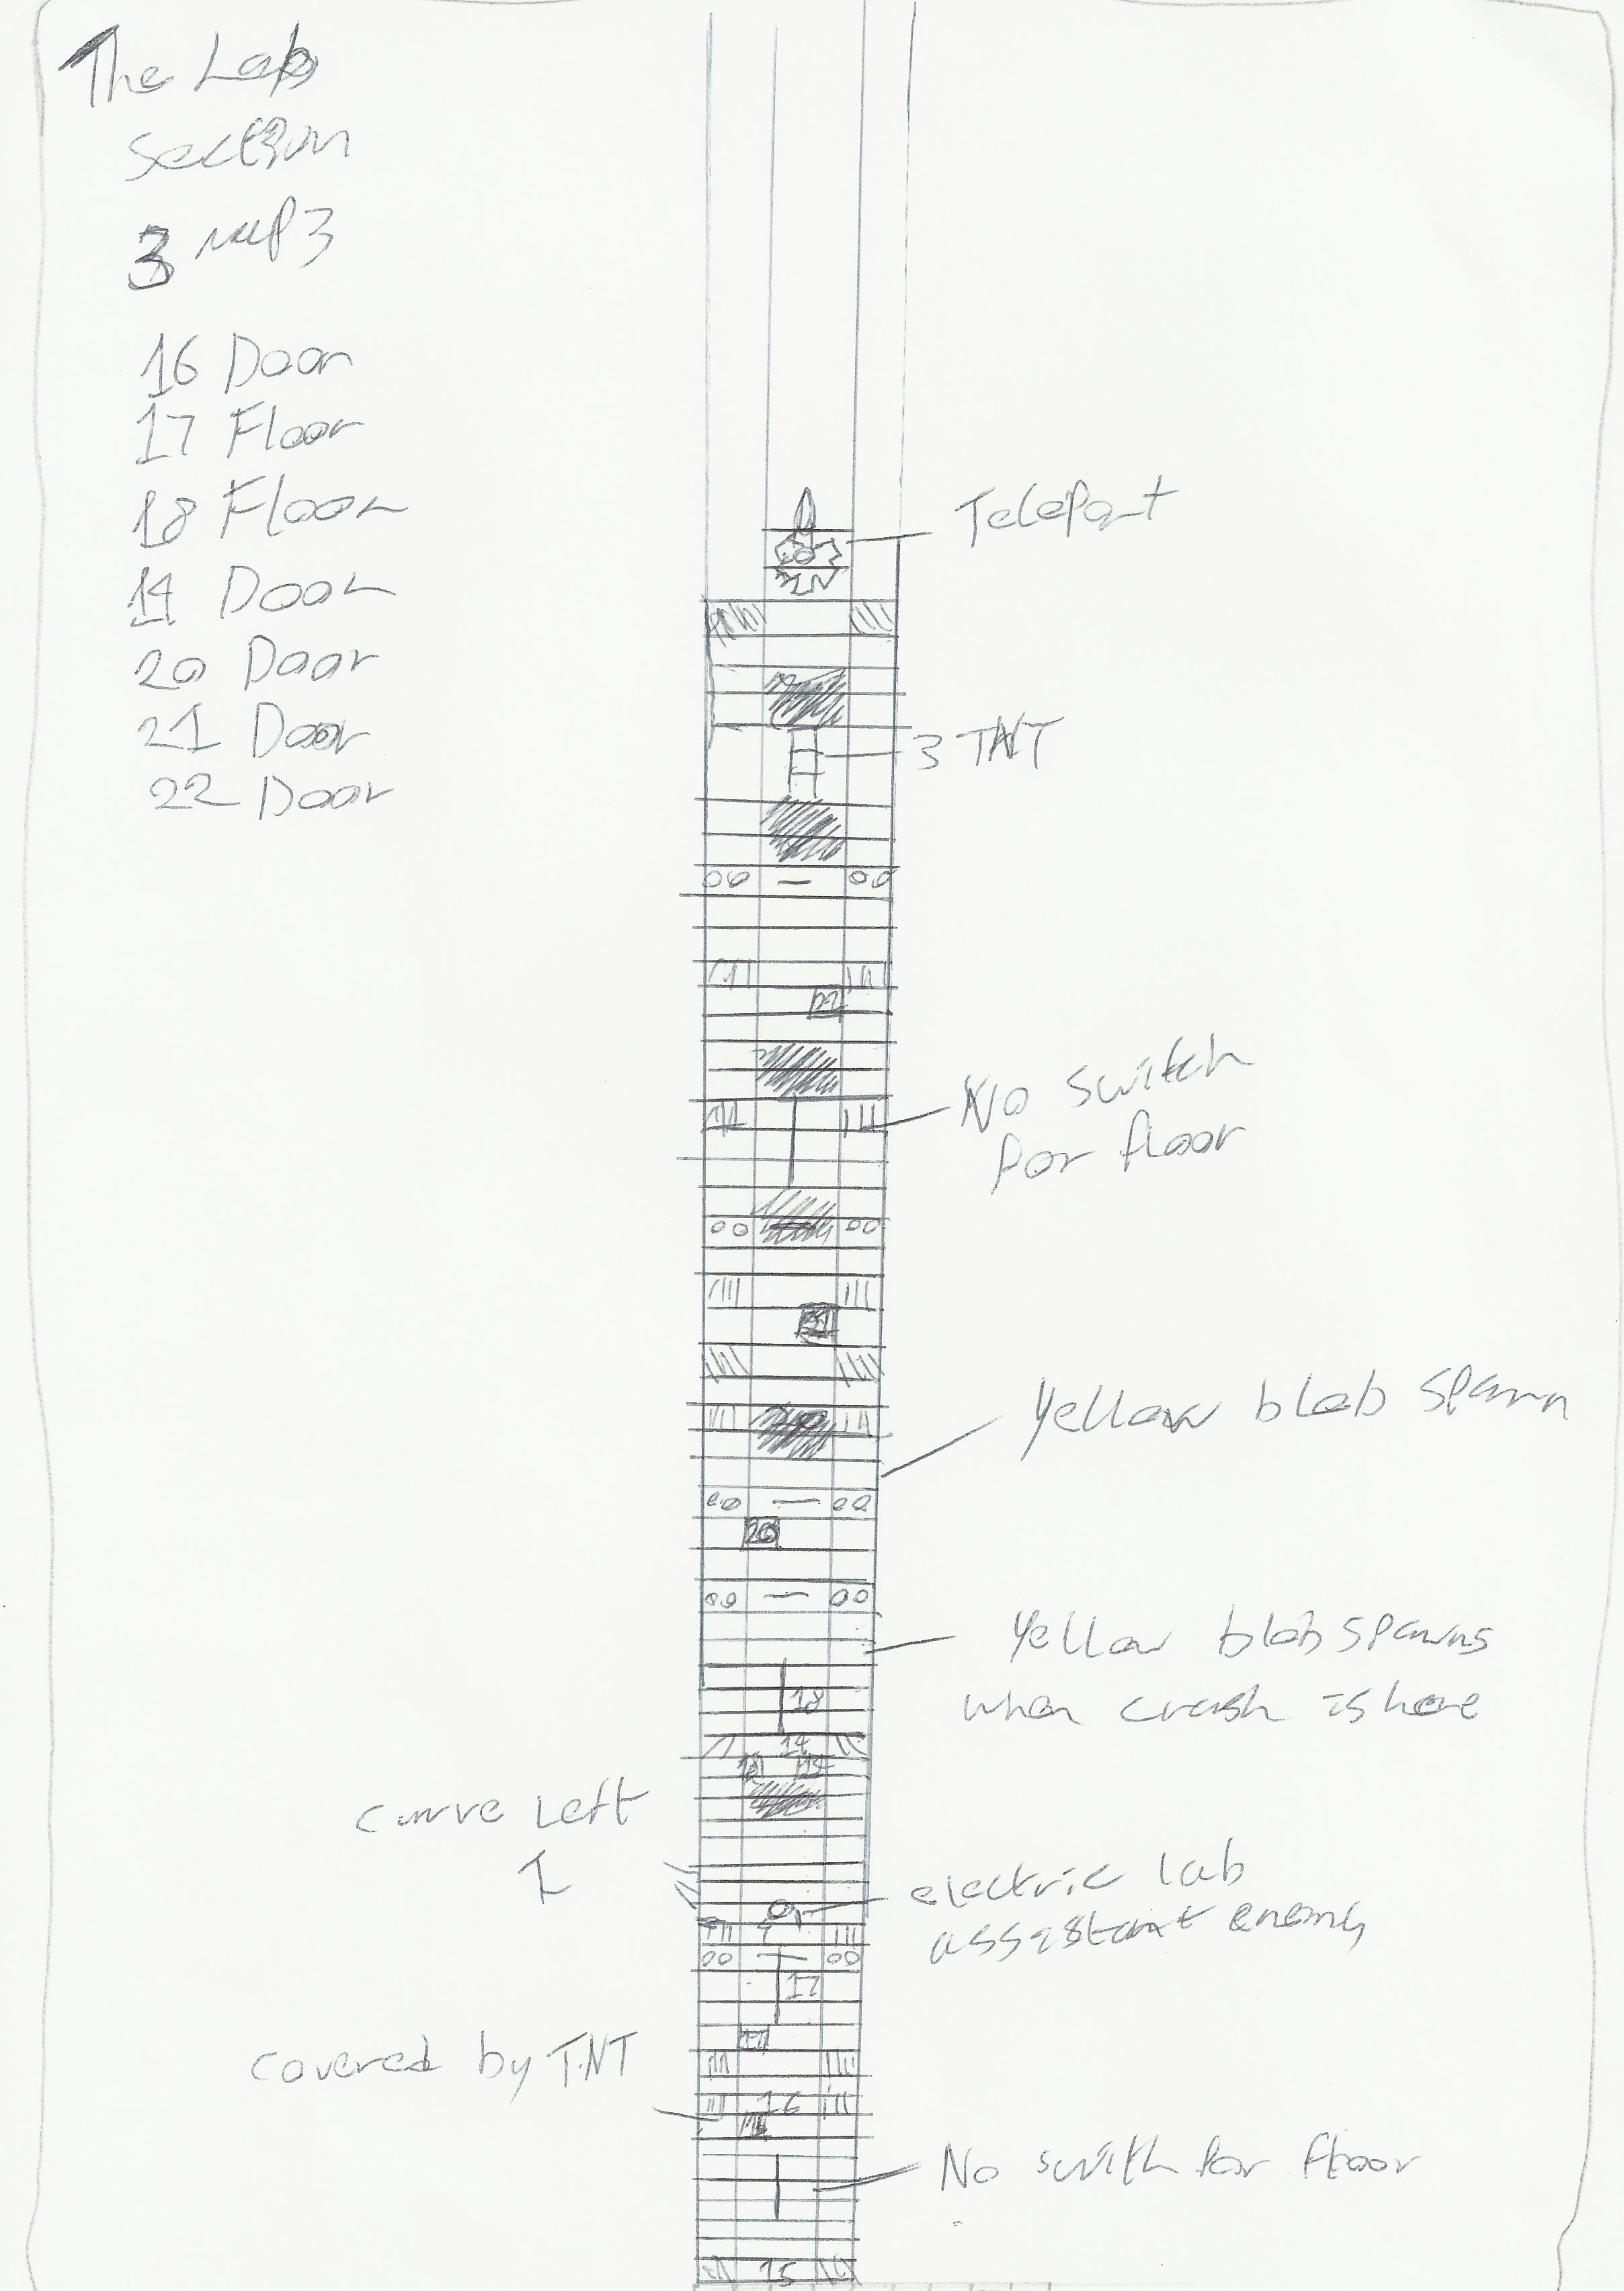 The Lab
Section
3 map 3
16 Door
17 Floor
18 Floor
19 Door
20 Door
21 Door
22 Door
Teleport
3 TNT
22
No switch
for floor
21
Yellow blob spawn
20
Yellow blob spawns
when crash is here
18
19
18 19
curve left
1
electric lab
assistant enemy
17
17
covered by TNT
16
No swith for floor
15